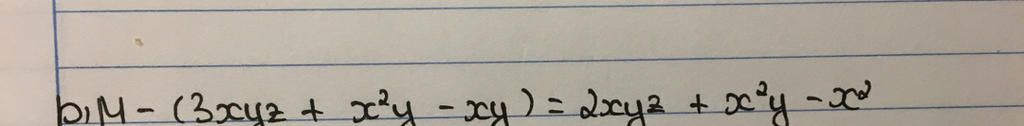 b, M - (3xyz + x²y - xy) = 2xyz + x²y - x²